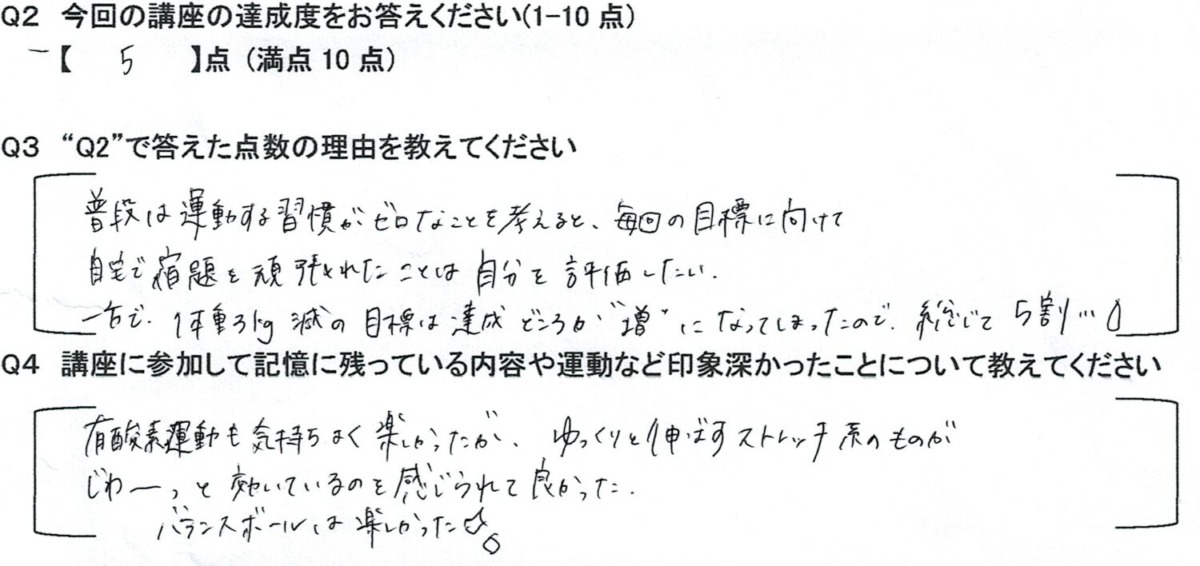 Q2 今回の講座の達成度をお答えください(1-10 点)
【 5 】点 (満点 10 点)
Q3 “Q2”で答えた点数の理由を教えてください
普段は運動する習慣がゼロなことを考えると、毎回の目標に向けて
自宅で宿題を頑張れたことは自分を評価したい.
一方で、体重3kg減の目標は達成どころか“増”になってしまったので、総じて5割…
Q4 講座に参加して記憶に残っている内容や運動など印象深かったことについて教えてください
有酸素運動も気持ちよく楽しかったが、ゆっくりと伸ばすストレッチ系のものが
じわーっと効いているのを感じられて良かった.
バランスボールは楽しかった